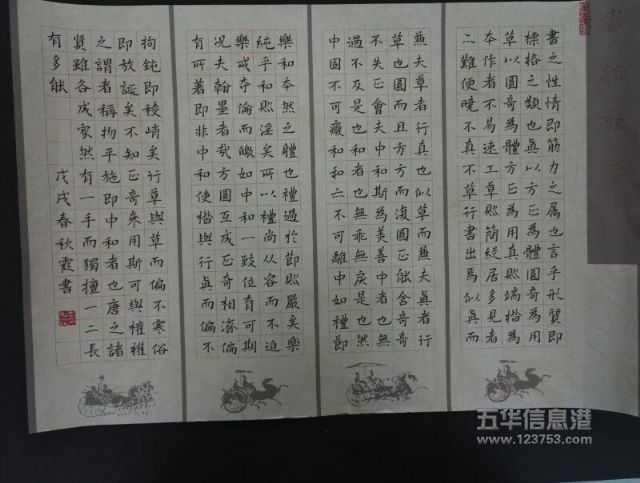 書之性情即筋力之属也言乎形質即
標格之類也真以方正為體圓奇為用
草以圓奇為體方正為用真則端楷為
本作者不易速工草則簡縱居多見者
二難便曉不真不草行書出焉似真而
兼夫草者行真也似草而兼夫真者行
草也圓而且方方而復圓正能含奇奇
不失正會夫中和斯為美善中者也無
過不及是也和者也無乖無戾是也然
中固不可癈和和亦不可離中如禮節
樂和本然之體也禮過於節則嚴矣樂
純乎和則淫矣所以禮尚從容而不迫
樂戒奪倫而皦如中和一致位育可期
況夫翰墨者哉方圓互成正奇相濟偏
有所著即非中和使楷與行真而偏不
拘鈍即稜峭矣行草與草而偏不寒俗
即放誕矣不知正奇參用斯可與權權
之謂者稱物平施即中和者也唐之諸
賢雖各成家然有一手而獨擅一二長
有多能 戊戌春秋霞書
五华信息港
www.123753.com